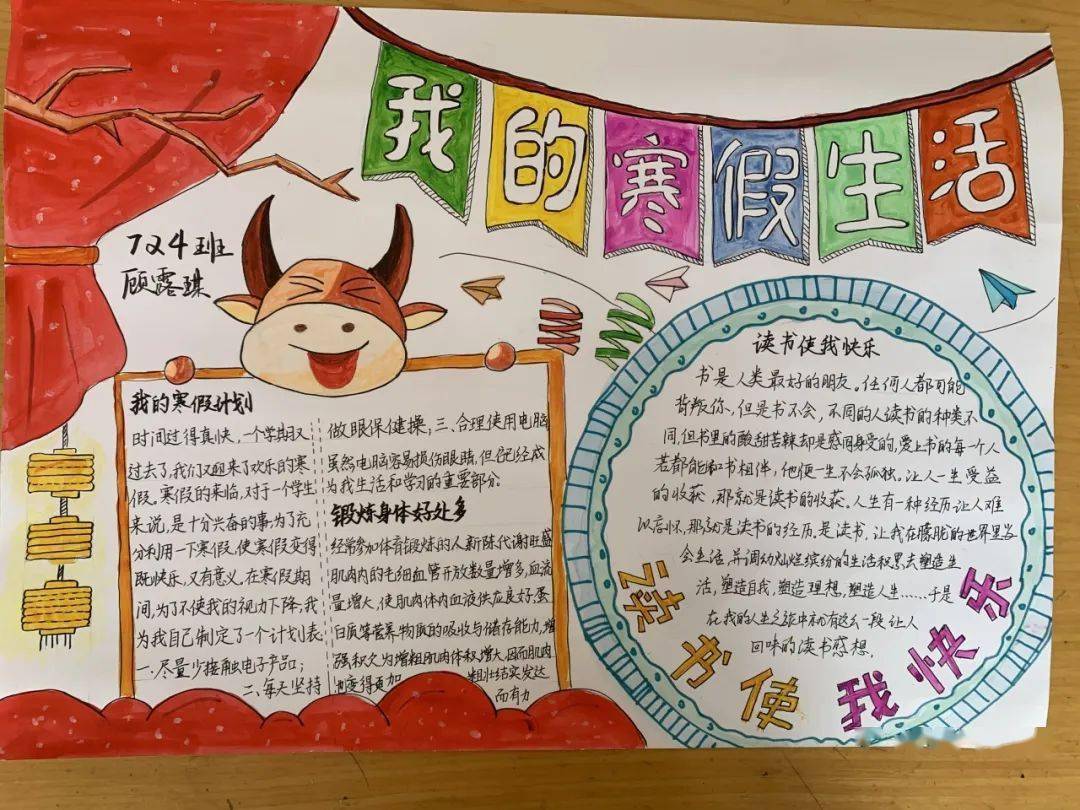 我的寒假生活
724班
顾露琪
我的寒假计划
时间过得真快,一个学期又
过去了,我们又迎来了欢乐的寒
假。寒假的来临,对于一个学生
来说,是十分兴奋的事,为了充
分利用一下寒假,使寒假变得
既快乐,又有意义,在寒假期
间,为了不使我的视力下降,我
为我自己制定了一个计划表
一、尽量少接触电子产品;
二、每天坚持
做眼保健操;三、合理使用电脑
虽然电脑容易损伤眼睛,但已经成
为我生活和学习的重要部分。
锻炼身体好处多
经常参加体育锻炼的人新陈代谢旺盛
肌肉内的毛细血管开放数量增多,血流
量增大,使肌肉体内血液供应良好,蛋
白质等营养物质的吸收与储存能力,增
强积久为增粗肌肉体积,增大,因而肌肉
变得更加
粗壮结实发达
而有力
读书使我快乐
书是人类最好的朋友。任何人都可能
背叛你,但是书不会,不同的人读书的种类不
同,但书里的酸甜苦辣却是感同身受的,爱上书的每一个人
若都能和书相伴,他便一生不会孤独。让人一生受益
的收获,那就是读书的收获。人生有一种经历让人难
以忘怀,那就是读书的经历,是读书,让我在朦胧的世界里
会生活,并调动灿烂缤纷的生活积累去塑造生
活,塑造自我,塑造理想,塑造人生……于是
在我的人生之旅中就有这么一段让人
回味的读书感想。
读书使我快乐